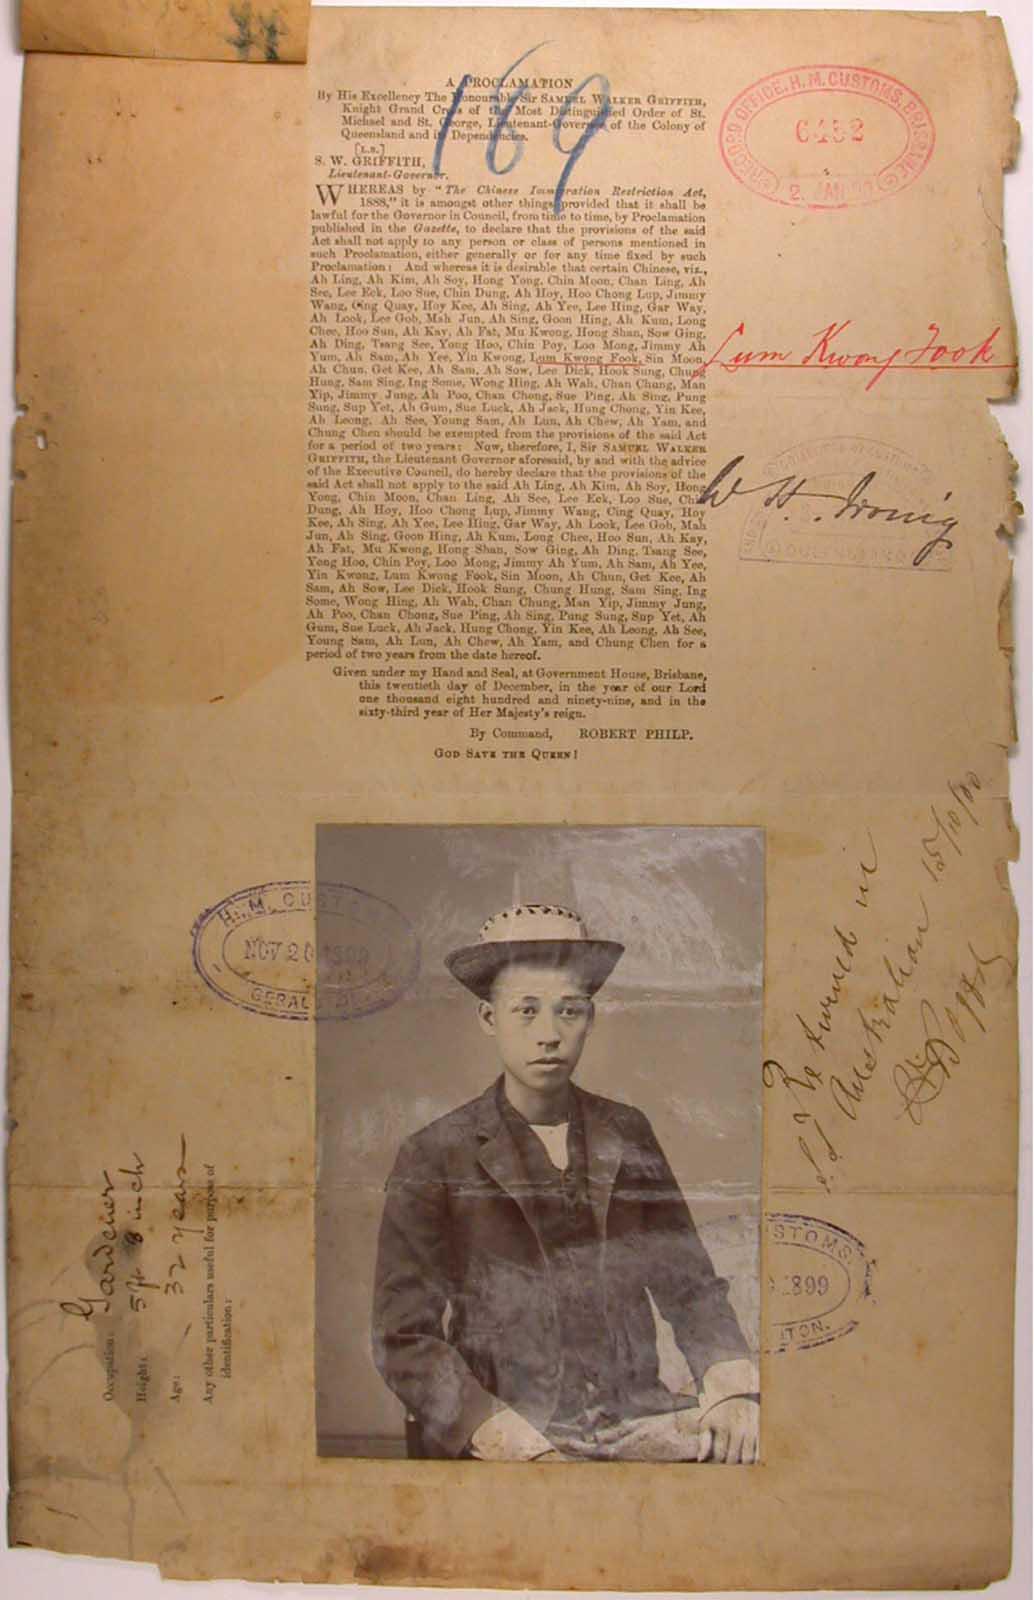 169
A PROCLAMATION
By His Excellency The Honourable Sir SAMUEL WALKER GRIFFITH,
Knight Grand Cross of the Most Distinguished Order of St.
Michael and St. George, Lieutenant-Governor of the Colony of
Queensland and its Dependencies.
[L.S.]
S. W. GRIFFITH,
Lieutenant-Governor.
WHEREAS by "The Chinese Immigration Restriction Act,
1888," it is amongst other things provided that it shall be
lawful for the Governor in Council, from time to time, by Proclamation
published in the Gazette, to declare that the provisions of the said
Act shall not apply to any person or class of persons mentioned in
such Proclamation, either generally or for any time fixed by such
Proclamation: And whereas it is desirable that certain Chinese, viz.,
Ah Ling, Ah Kim, Ah Soy, Hong Yong, Chin Moon, Chan Ling, Ah
See, Lee Eek, Loo Sue, Chin Dung, Ah Hoy, Hoo Chong Lup, Jimmy
Wang, Cing Quay, Hoy Kee, Ah Sing, Ah Yee, Lee Hing, Gar Way,
Ah Look, Lee Gob, Mah Jun, Ah Sing, Goon Hing, Ah Kum, Long
Chee, Hoo Sun, Ah Kay, Ah Fat, Mu Kwong, Hong Shan, Sow Ging,
Ah Ding, Tsang See, Yong Hoo, Chin Poy, Loo Mong, Jimmy Ah
Yum, Ah Sam, Ah Yee, Yin Kwong, Lum Kwong Fook, Sin Moon,
Ah Chun, Get Kee, Ah Sam, Ah Sow, Lee Dick, Hook Sung, Chung
Hung, Sam Sing, Ing Some, Wong Hing, Ah Wah, Chan Chung, Man
Yip, Jimmy Jung, Ah Poo, Chan Chong, Sue Ping, Ah Sing, Pung
Sung, Sup Yet, Ah Gum, Sue Luck, Ah Jack, Hung Chong, Yin Kee,
Ah Leong, Ah See, Young Sam, Ah Lun, Ah Chew, Ah Yam, and
Chung Chen should be exempted from the provisions of the said Act
for a period of two years: Now, therefore, I, Sir SAMUEL WALKER
GRIFFITH, the Lieutenant Governor aforesaid, by and with the advice
of the Executive Council, do hereby declare that the provisions of the
said Act shall not apply to the said Ah Ling, Ah Kim, Ah Soy, Hong
Yong, Chin Moon, Chan Ling, Ah See, Lee Eek, Loo Sue, Chin
Dung, Ah Hoy, Hoo Chong Lup, Jimmy Wang, Cing Quay, Hoy
Kee, Ah Sing, Ah Yee, Lee Hing, Gar Way, Ah Look, Lee Gob, Mah
Jun, Ah Sing, Goon Hing, Ah Kum, Long Chee, Hoo Sun, Ah Kay,
Ah Fat, Mu Kwong, Hong Shan, Sow Ging, Ah Ding, Tsang See,
Yong Hoo, Chin Poy, Loo Mong, Jimmy Ah Yum, Ah Sam, Ah Yee,
Yin Kwong, Lum Kwong Fook, Sin Moon, Ah Chun, Get Kee, Ah
Sam, Ah Sow, Lee Dick, Hook Sung, Chung Hung, Sam Sing, Ing
Some, Wong Hing, Ah Wah, Chan Chung, Man Yip, Jimmy Jung,
Ah Poo, Chan Chong, Sue Ping, Ah Sing, Pung Sung, Sup Yet, Ah
Gum, Sue Luck, Ah Jack, Hung Chong, Yin Kee, Ah Leong, Ah See,
Young Sam, Ah Lun, Ah Chew, Ah Yam, and Chung Chen for a
period of two years from the date hereof.
Given under my Hand and Seal, at Government House, Brisbane,
this twentieth day of December, in the year of our Lord
one thousand eight hundred and ninety-nine, and in the
sixty-third year of Her Majesty's reign.
By Command, ROBERT PHILP.
GOD SAVE THE QUEEN!
RECORD OFFICE, H. M. CUSTOMS, BRISBANE
6452
2. JAN
Lum Kwong Fook
W H.
QUEENSLAND
H. M. CUSTOMS
NOV 20 1899
GERALDTON
Returned in
Australian 15/10/00
CUSTOMS.
1899
TON.
Occupation: Gardener
Height: 5 ft 8 inch
Age: 32 years
Any other particulars useful for purpose of
identification: